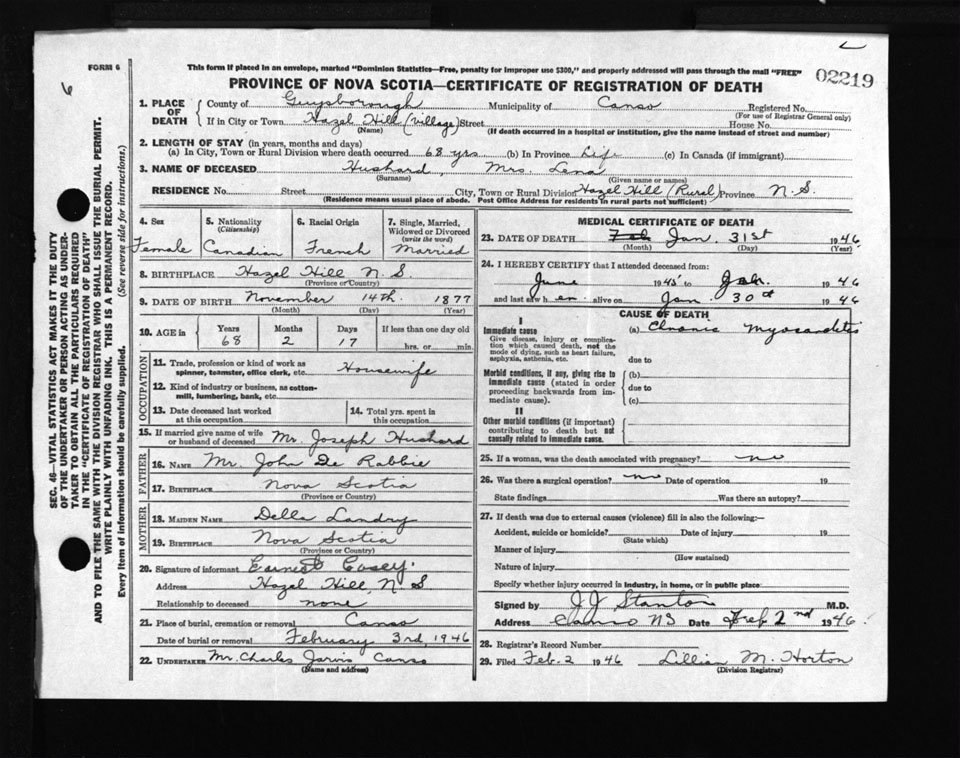 6
FORM 6
This form if placed in an envelope, marked "Dominion Statistics—Free, penalty for improper use $300," and properly addressed will pass through the mail "FREE"
02219
PROVINCE OF NOVA SCOTIA—CERTIFICATE OF REGISTRATION OF DEATH
1. PLACE OF DEATH
County of Guysborough Municipality of Canso Registered No.
(For use of Registrar General only)
If in City or Town Hazel Hill (village) Street House No.
(Name) (If death occurred in a hospital or institution, give the name instead of street and number)
2. LENGTH OF STAY (in years, months and days)
(a) In City, Town or Rural Division where death occurred 68 yrs (b) In Province Life (c) In Canada (if immigrant)
3. NAME OF DECEASED Hushard, Mrs. Lena
(Surname) (Given name or names)
RESIDENCE No. Street City, Town or Rural Division Hazel Hill (Rural) Province N.S.
(Residence means usual place of abode. Post Office Address for residents in rural parts not sufficient)
4. Sex
Female
5. Nationality
(Citizenship)
Canadian
6. Racial Origin
French
7. Single, Married, Widowed or Divorced
(write the word)
Married
8. BIRTHPLACE Hazel Hill N.S.
(Province or Country)
9. DATE OF BIRTH November 14th. 1877
(Month) (Day) (Year)
10. AGE in
Years Months Days If less than one day old
68 2 17 hrs. or min.
OCCUPATION
11. Trade, profession or kind of work as spinner, teamster, office clerk, etc. Housewife
12. Kind of industry or business, as cotton-mill, lumbering, bank, etc.
13. Date deceased last worked at this occupation
14. Total yrs. spent in this occupation
15. If married give name of wife or husband of deceased Mr. Joseph Hushard
FATHER
16. NAME Mr. John De Rabbie
17. BIRTHPLACE Nova Scotia
(Province or Country)
MOTHER
18. MAIDEN NAME Della Landry
19. BIRTHPLACE Nova Scotia
(Province or Country)
20. Signature of informant Earnest Casey.
Address Hazel Hill, N S
Relationship to deceased none
21. Place of burial, cremation or removal Canso
Date of burial or removal February 3rd, 1946
22. UNDERTAKER Mr. Charles Jarvis Canso
(Name and address)
MEDICAL CERTIFICATE OF DEATH
23. DATE OF DEATH Feb Jan. 31st 1946
(Month) (Day) (Year)
24. I HEREBY CERTIFY that I attended deceased from:
June 1945 to Jan. 1946
and last saw h er alive on Jan. 30th 1946
CAUSE OF DEATH
I
Immediate cause
Give disease, injury or complication which caused death, not the mode of dying, such as heart failure, asphyxia, asthenia, etc.
(a) Chronic Myocarditis
due to
Morbid conditions, if any, giving rise to immediate cause (stated in order proceeding backwards from immediate cause).
(b)
due to
(c)
II
Other morbid conditions (if important) contributing to death but not causally related to immediate cause.
25. If a woman, was the death associated with pregnancy? no
26. Was there a surgical operation? no Date of operation 19
State findings Was there an autopsy?
27. If death was due to external causes (violence) fill in also the following:—
Accident, suicide or homicide? Date of injury 19
(State which)
Manner of injury
(How sustained)
Nature of injury
Specify whether injury occurred in industry, in home, or in public place
Signed by J J Stanton M.D.
Address Canso NS Date Feb 2nd 1946
28. Registrar's Record Number
29. Filed Feb. 2 1946 Lillian M. Horton
(Division Registrar)
SEC. 46—VITAL STATISTICS ACT MAKES IT THE DUTY
OF THE UNDERTAKER OR PERSON ACTING AS UNDER-
TAKER TO OBTAIN ALL THE PARTICULARS REQUIRED
IN THE "CERTIFICATE OF REGISTRATION OF DEATH"
AND TO FILE THE SAME WITH THE DIVISION REGISTRAR WHO SHALL ISSUE THE BURIAL PERMIT.
WRITE PLAINLY WITH UNFADING INK. THIS IS A PERMANENT RECORD.
Every item of information should be carefully supplied. (See reverse side for instructions.)